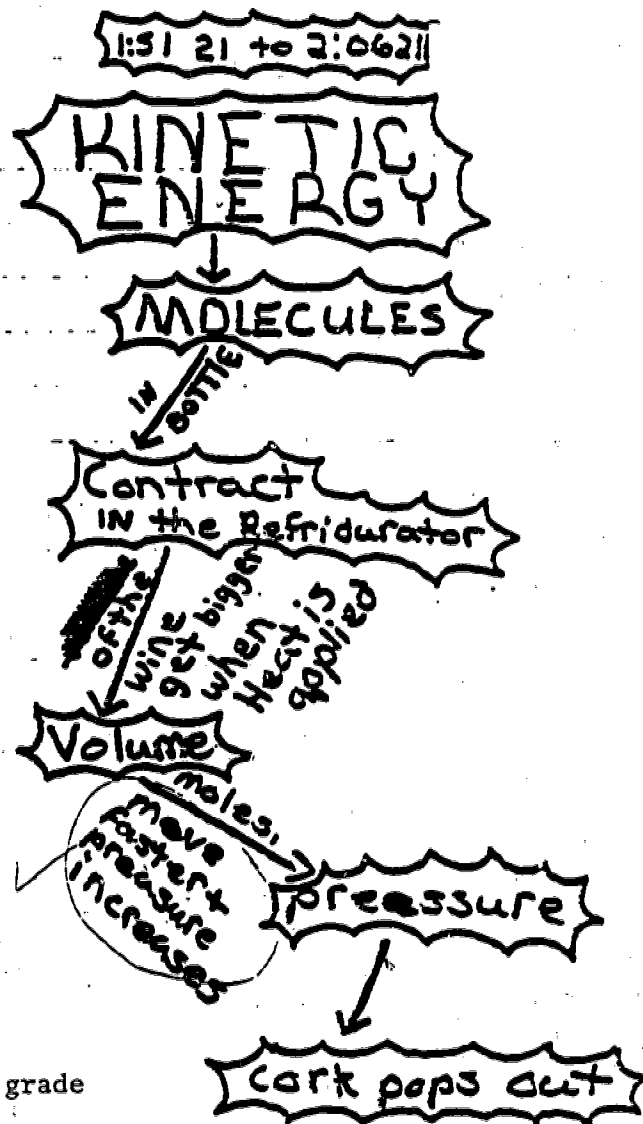 1:51 21 to 2:0621
KINETIC
ENERGY
MOLECULES
IN
BOTTLE
Contract
IN the Refridurator
of the
wine
get bigger
when
Heat is
applied
Volume
moles,
move
faster +
preasure
increases
preassure
cork pops out
grade